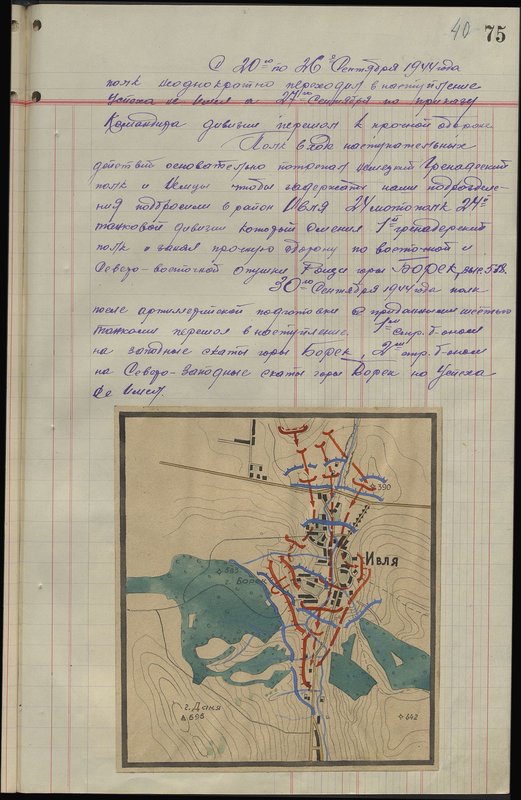 40 75
С 20го по 26 Сентября 1944 года
полк неоднократно переходил в наступление
Успеха не имел а 27го Сентября по приказу
Командира дивизии перешол к прочной обороне.
Полк в ходе наступательных
действий основательно потрепал немецкий Гренадерский
полк и Немцы чтобы задержать наши подразделе-
ния подбросили в район Ивля 24 мотополк 24й
танковой дивизии который сменил 1й гренадерский
полк и занял прочную оборону по восточной и
Северо-восточной опушки Рощи горы Борек, выс 585.
30го Сентября 1944 года полк
после артиллерийской подготовки с приданными шестью
танками перешол в наступление. 1м стр. б-оном
на западные скаты горы Борек, 2м стр. б-оном
на Северо-Западные скаты горы Борек но Успеха
не имел.
390
Ивля
585
г. Борек
г. Даня
696
642